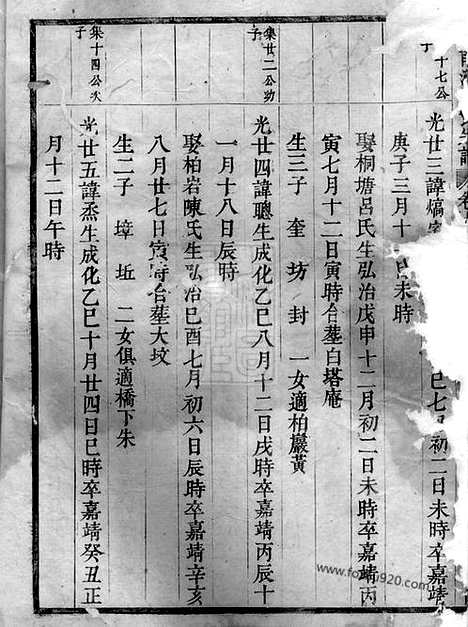 十七公
丁
光廿三諱熇
巳七月初二日未時卒嘉靖
庚子三月十
日未時
娶桐塘呂氏生弘治戊申十二月初二日未時卒嘉靖丙
寅七月十二日寅時合塟白塔庵
生三子 奎 坊 封 一女適柏巖黃
集廿二公幼
子
光廿四諱聰生成化乙巳八月十二日戌時卒嘉靖丙辰十
一月十八日辰時
娶柏岩陳氏生弘治巳酉七月初六日辰時卒嘉靖辛亥
八月廿七日寅時合塟大坟
生二子 埻 坵 二女俱適橋下朱
集十四公次
子
光廿五諱烝生成化乙巳十月廿四日巳時卒嘉靖癸丑正
月十二日午時
www.foxue920.com